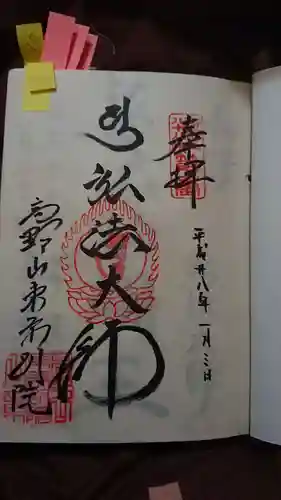 奉拝
平成廿八年一月三日
弘法大師
高野山東京別院